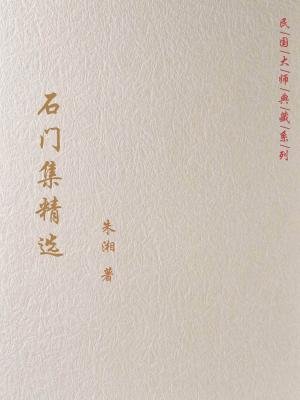 民|国|大|师|典|藏|系|列
石门集精选
朱湘 著